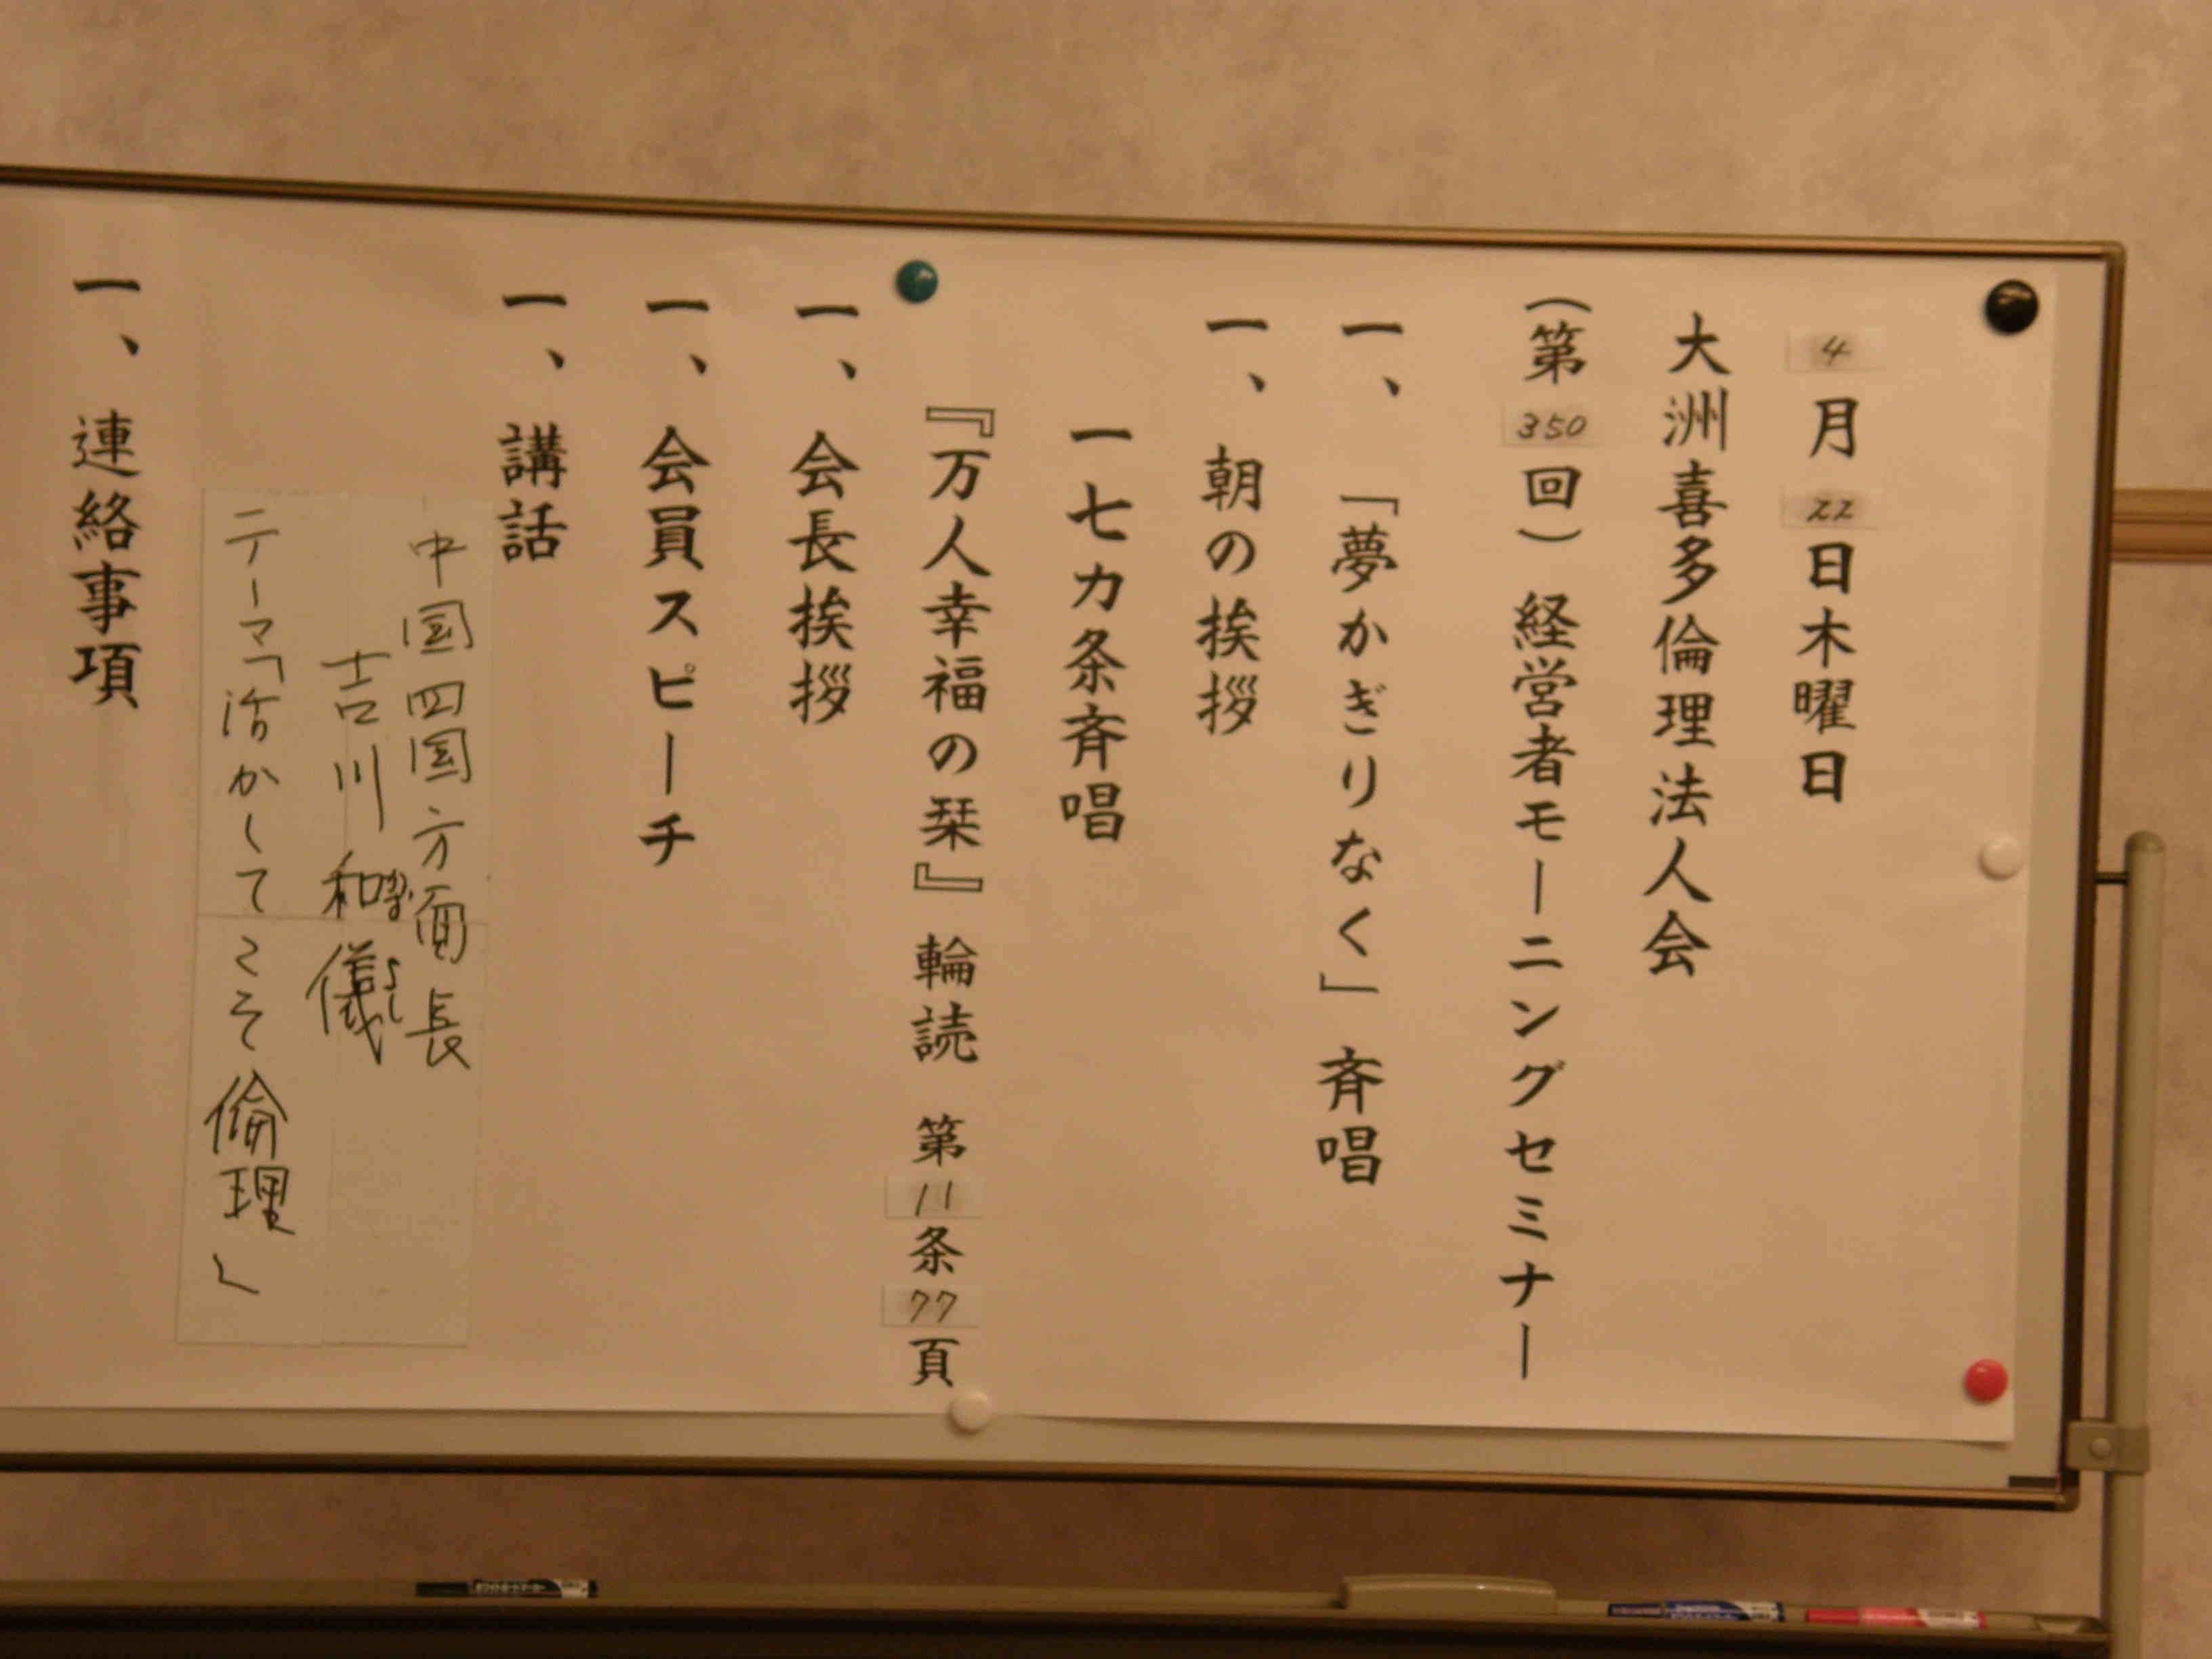 4月22日木曜日
大洲喜多倫理法人会
(第350回) 経営者モーニングセミナー
一、「夢かぎりなく」斉唱
一、朝の挨拶
一七カ条斉唱
『万人幸福の栞』輪読 第11条77頁
一、会長挨拶
一、会員スピーチ
一、講話
中国四国方面長
吉川 和儀
テーマ「活かしてこそ倫理」
一、連絡事項